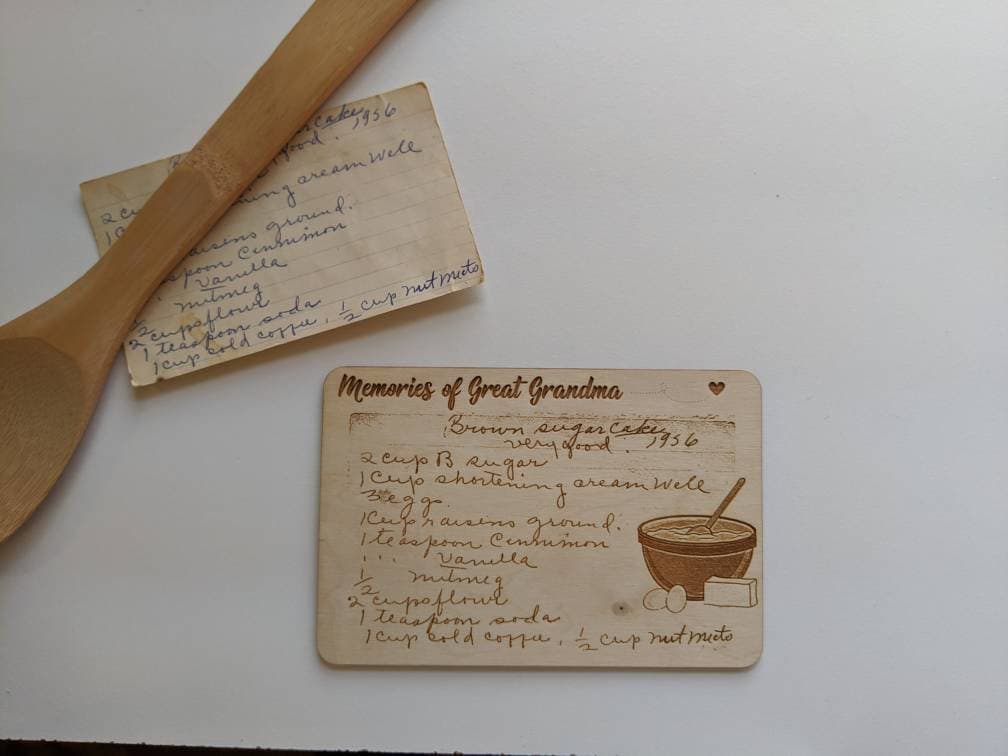 cake
good. 1956
2 cu
ning cream Well
aisens ground.
spoon Cinnimon
Vanilla
nutmeg
2 cups flour
1 teaspoon soda
1 cup cold coffee, 1/2 cup nut meets
Memories of Great Grandma
Brown sugar cake
very good. 1956
2 cup B sugar
1 cup shortening cream Well
3 eggs
1 cup raisens ground.
1 teaspoon Cinnimon
1 " " Vanilla
1/2 nutmeg
2 cups flour
1 teaspoon soda
1 cup cold coffee, 1/2 cup nut meets